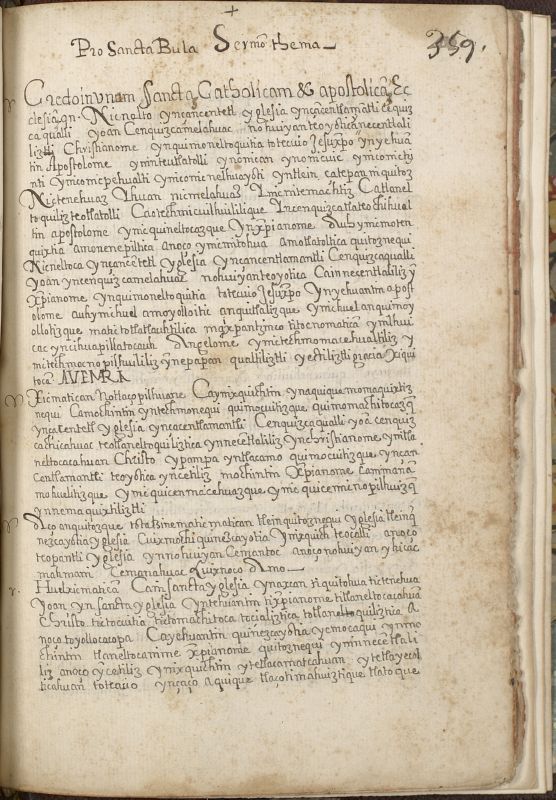 +
Pro Sancta Bula Sermo thema
359.
Credo in unam Sanctã Catholicam & apostolicã Ec
clesiã. qn. Nicnelto yncancentetl yglesia yncancentlamãtli cequiz
ca qualli yoan Cenquizcamelahuac nohuiyanteoyotica necentlali
liztli Christianome ynquimoneltoquitia totecuio Jesuxpo ynyehuã
tin Apostolome yninteutlatolli ynomican ynomicuic ymicomictz
nti ymicomicpehualti ymicomicnelhuayoti yntlein catepan niquitoz
Nictenehuaz Auan nicmelahuaz Imicnitemachtiz Catlanel
toquiliz teotlatolli Caotechmicuilhuililique Incenquizcatlateochihuel
tin apostolome ymicquineltocazque Ynxpianome Auhymicmoten
quixtia amonenepilhtica anoco ymicmitohua Amotlatoltica quitoznequi
Nicneltoca yncancẽtetl yglesia yncancentlamantli Cenquizcaqualli
yoan yncenquizcamelahuac nohuiyanteoyotica Cainnecentlaliliz y
xpianome ynquimoneltoquitia totecuio Jesuxpo Ynyehuantin apost
olome auhymichuel amoyollotitic anquitlalizque ymichuel anquimoy
ollotizque matictotlatlauhtilica
cac yncihuapillatocauh Angelome ymitechmomacehualtiliz y
mitechmocnopilhuililiz ynepapan qualtiliztli yectiliztli gracia Xiqui
toca AVEMRIA
Xicmatican Notlaçopilhuane Caymixquichtin ynaquique momaquixtiz
nequi Camochintin yntechmonequi quimocuitizque quimomachitocazq
yncacentetl yglesia yncacentlamantli Cenquizcaqualli yoã cenquiz
cachicahuac teotlaneltoquiliztica ynnecẽtlaliliz ynchristianome ymtla
neltocacahuan Christo ypampa yntlacamo quimocuitizque yncan
centlamantli teoyotica yncetiliz mochintin Xpianome Caminamã
mohuelitizque ymicquicenmacehuazque ymic quicenicnopilhuizq
ynnemaquixtiliztli
Aço anquitozque totatzine maticmatican tlein quitoznequi yglesia tleinq
nezcayotia yglesia Cuixmochi quinezcayotia Ynixquich teocalli anoço
teopantli yglesia ynnohuiyan Cemanoc anoço nohuiyan yhicac
mahmani Cemanahuac Cuixnoço Amo
Huelxicmaticã Camsancta yglesia ynaxcan tiquitohua tictenehua
yoan yn sancta yglesia yntehuantin tixpianome titlaneltocacahua
Christo tictocuitia tictomachitoca tocializtica totlaneltoquiliztica A
noço toyollocacopa Cayehuantin quinezcayotia ycmocaqui ynmo
chintin tlaneltocanime xpianome quitoznequi ynnnecẽtlali
liz anoço ycetiliz ynixquichtin ytetlacamatcahuan ytetlayecol
ticahuan toteuio yncaço Aquique tlaçotimahuiztique tlatoque